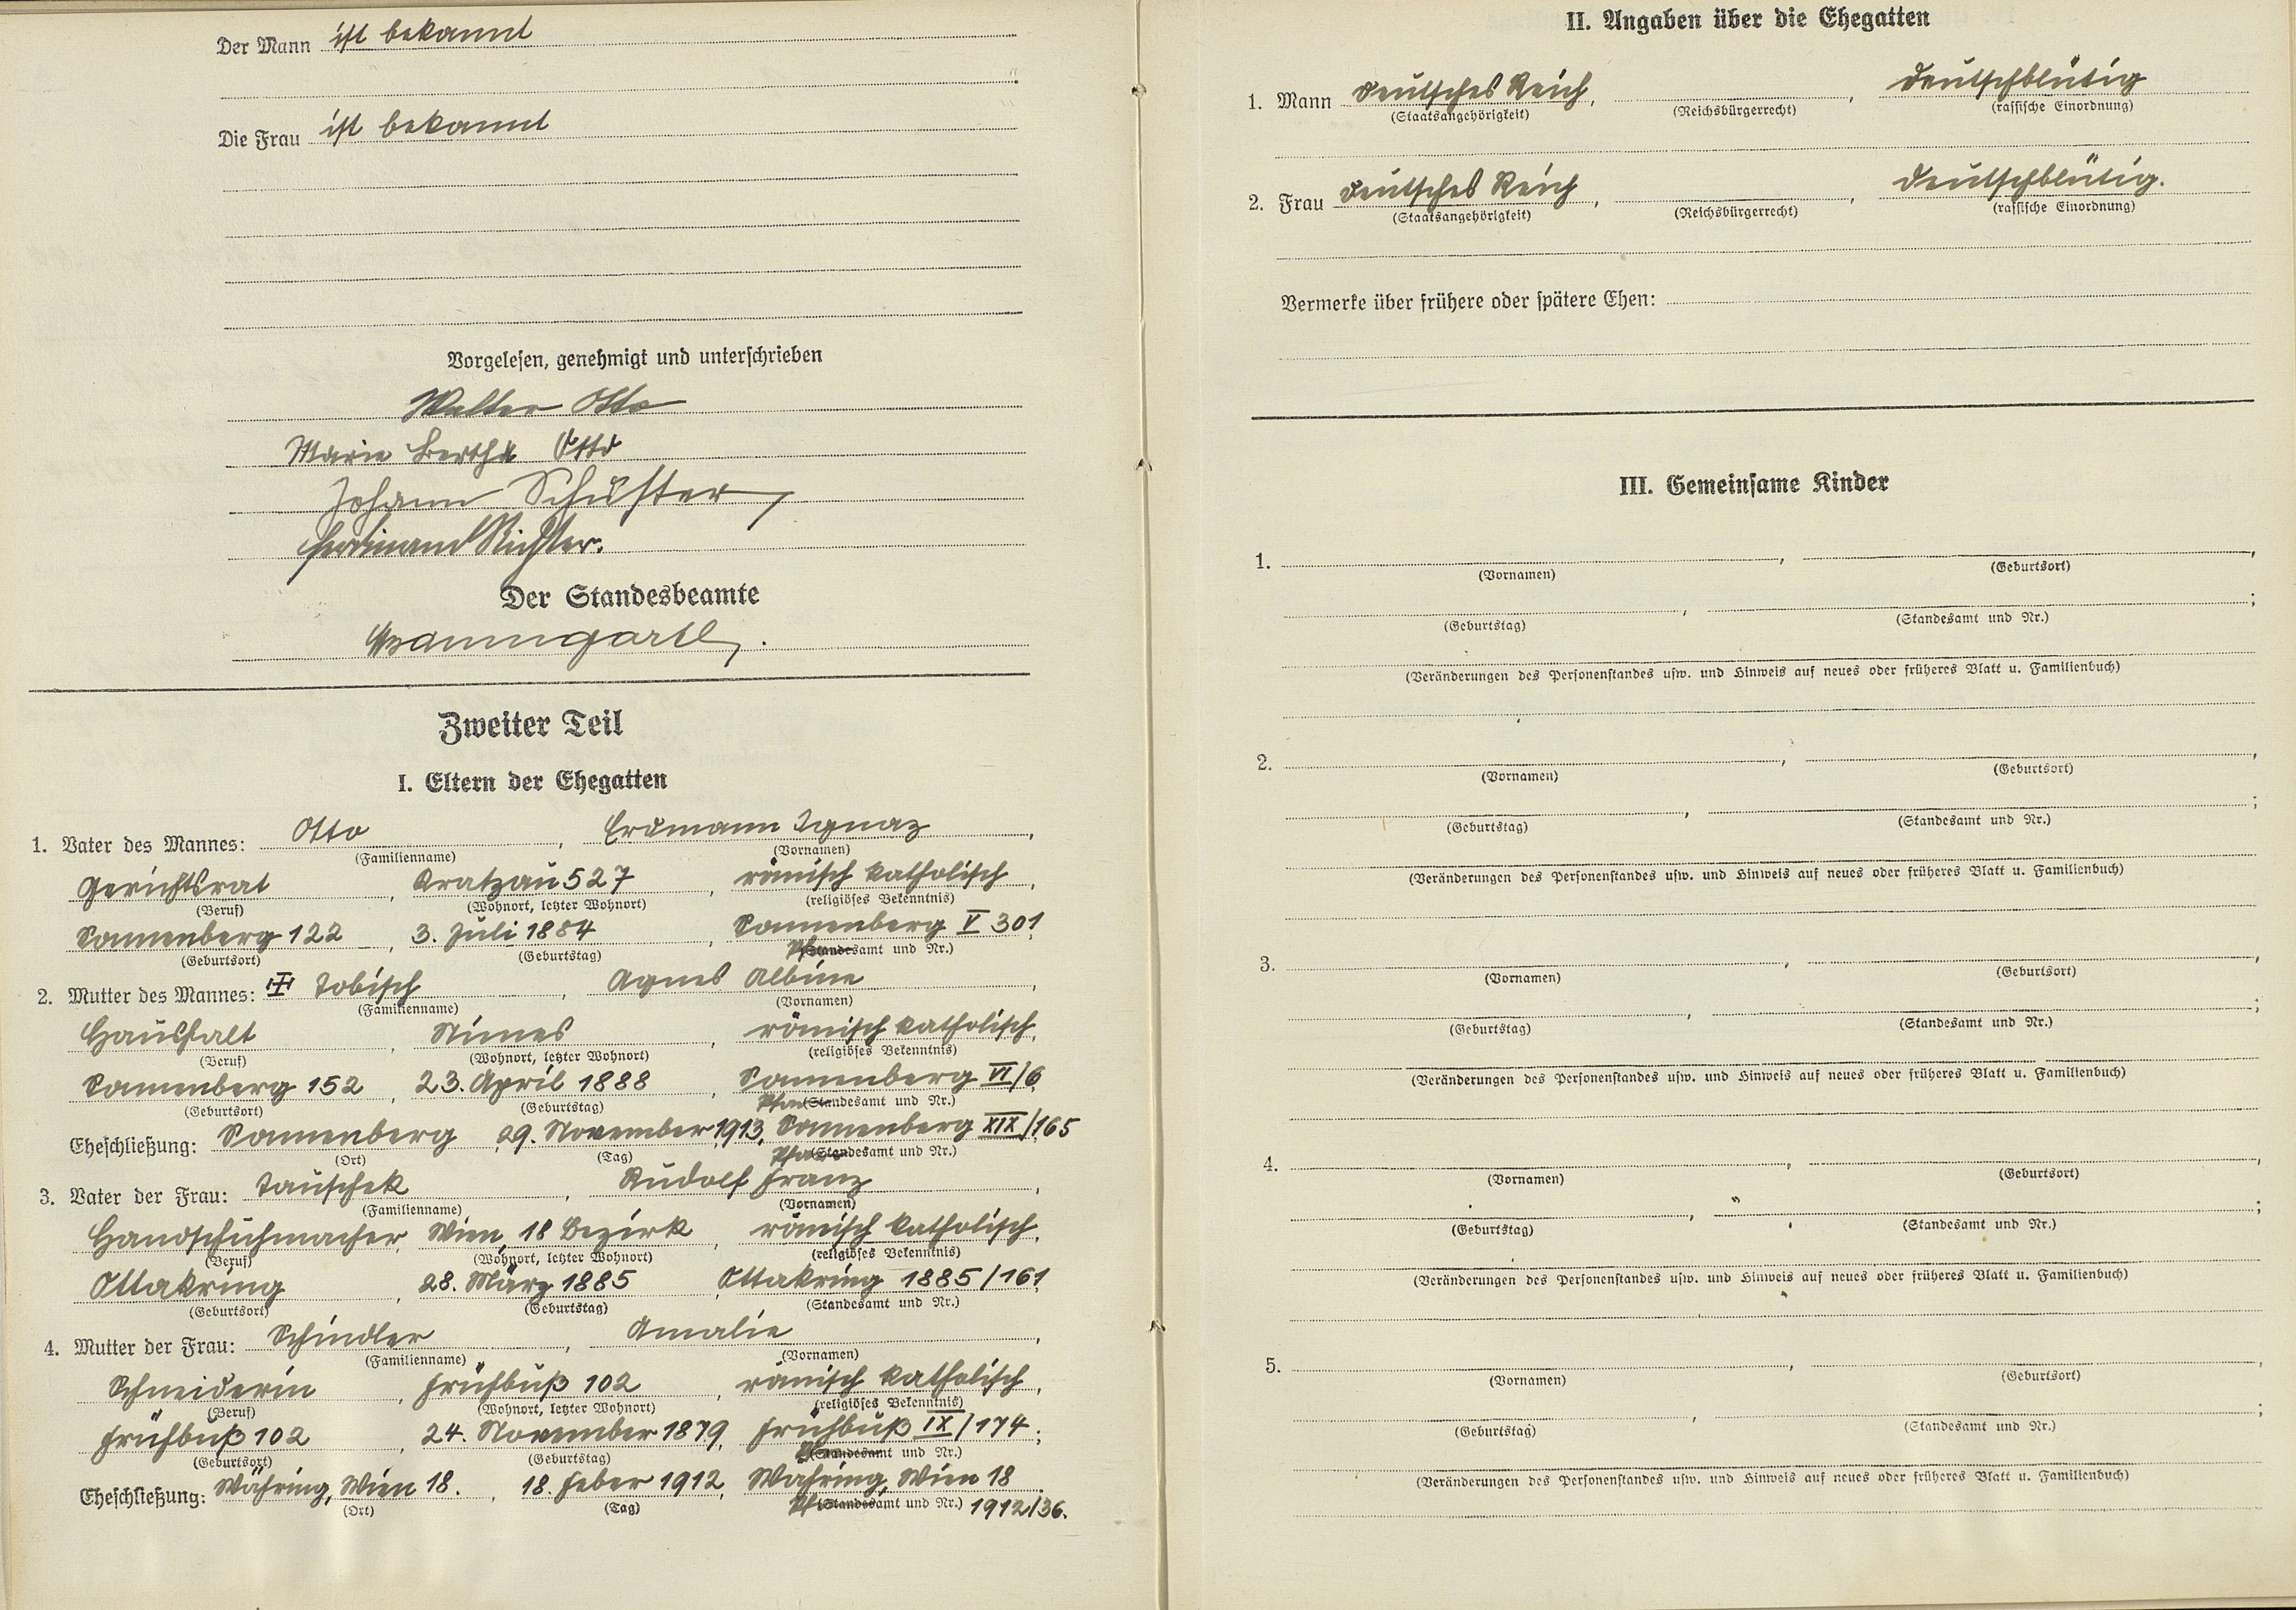 Der Mann ist bekannt
Die Frau ist bekannt
Vorgelesen, genehmigt und unterschrieben
Walter Otto
Marie Bertha Otto
Johann Schuster
Ferdinand Richter.
Der Standesbeamte
Baumgartl
Zweiter Teil
I. Eltern der Ehegatten
1. Vater des Mannes: Otto, Erdmann Ignaz,
(Familienname) (Vornamen)
Gerichtsrat, Kratzau 527, römisch katholisch,
(Beruf) (Wohnort, letzter Wohnort) (religiöses Bekenntnis)
Sonnenberg 122, 3. Juli 1884, Sonnenberg V 301
(Geburtsort) (Geburtstag) (Standesamt und Nr.)
2. Mutter des Mannes: Tobisch, Agnes Albine,
(Familienname) (Vornamen)
Haushalt, Nimes, römisch katholisch,
(Beruf) (Wohnort, letzter Wohnort) (religiöses Bekenntnis)
Sonnenberg 152, 23. April 1888, Sonnenberg VI/6
(Geburtsort) (Geburtstag) (Standesamt und Nr.)
Eheschließung: Sonnenberg, 29. November 1913, Sonnenberg XIX/165
(Ort) (Tag) (Standesamt und Nr.)
3. Vater der Frau: Tauschek, Rudolf Franz,
(Familienname) (Vornamen)
Handschuhmacher, Wien, 18 Bezirk, römisch katholisch,
(Beruf) (Wohnort, letzter Wohnort) (religiöses Bekenntnis)
Ottakring, 28. März 1885, Ottakring 1885/161
(Geburtsort) (Geburtstag) (Standesamt und Nr.)
4. Mutter der Frau: Schindler, Amalie,
(Familienname) (Vornamen)
Schneiderin, Frühbuß 102, römisch katholisch,
(Beruf) (Wohnort, letzter Wohnort) (religiöses Bekenntnis)
Frühbuß 102, 24. November 1879, Frühbuß IX/174;
(Geburtsort) (Geburtstag) (Standesamt und Nr.)
Eheschließung: Währing, Wien 18., 18. Feber 1912, Währing, Wien 18
(Ort) (Tag) (Standesamt und Nr.) 1912/36.
II. Angaben über die Ehegatten
1. Mann Deutsches Reich, , deutschblütig
(Staatsangehörigkeit) (Reichsbürgerrecht) (rassische Einordnung)
2. Frau Deutsches Reich, , deutschblütig.
(Staatsangehörigkeit) (Reichsbürgerrecht) (rassische Einordnung)
Vermerke über frühere oder spätere Ehen:
III. Gemeinsame Kinder
1. , ,
(Vornamen) (Geburtsort)
, ;
(Geburtstag) (Standesamt und Nr.)
(Veränderungen des Personenstandes usw. und Hinweis auf neues oder früheres Blatt u. Familienbuch)
2. , ,
(Vornamen) (Geburtsort)
, ;
(Geburtstag) (Standesamt und Nr.)
(Veränderungen des Personenstandes usw. und Hinweis auf neues oder früheres Blatt u. Familienbuch)
3. , ,
(Vornamen) (Geburtsort)
, ;
(Geburtstag) (Standesamt und Nr.)
(Veränderungen des Personenstandes usw. und Hinweis auf neues oder früheres Blatt u. Familienbuch)
4. , ,
(Vornamen) (Geburtsort)
, ;
(Geburtstag) (Standesamt und Nr.)
(Veränderungen des Personenstandes usw. und Hinweis auf neues oder früheres Blatt u. Familienbuch)
5. , ,
(Vornamen) (Geburtsort)
, ;
(Geburtstag) (Standesamt und Nr.)
(Veränderungen des Personenstandes usw. und Hinweis auf neues oder früheres Blatt u. Familienbuch)